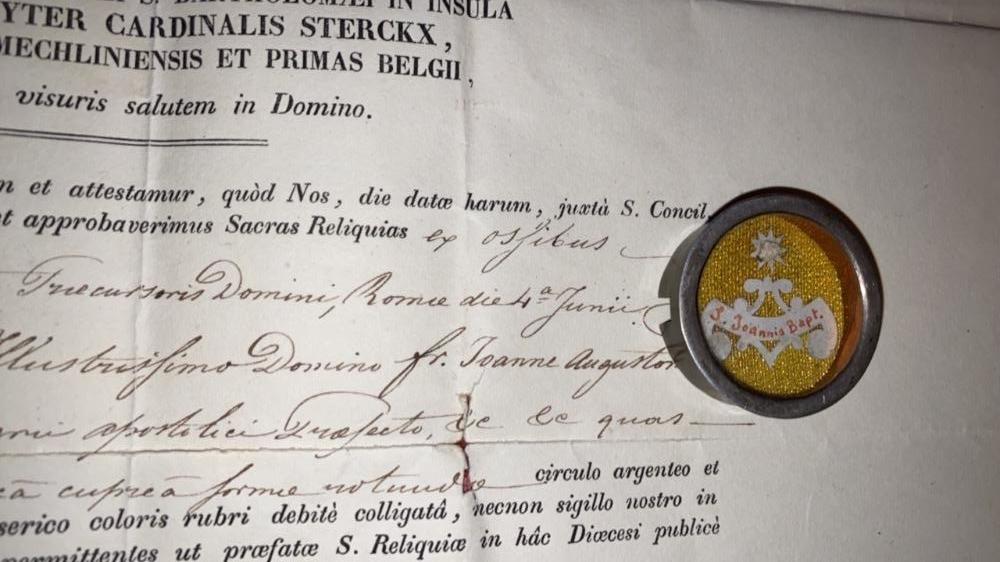 S. BARTHOLOMÆI IN INSULA
YTER CARDINALIS STERCKX,
MECHLINIENSIS ET PRIMAS BELGII,
visuris salutem in Domino.
et attestamur, quòd Nos, die datæ harum, juxtà S. Concil.
et approbaverimus Sacras Reliquias ex ossibus
Præcursoris Domini, Romæ die 4ª Junii
Illustrissimo Domino fr. Joanne Augustin
apostolici Præfecto, &c &c quas
câ cupreâ formæ rotundæ circulo argenteo et
serico coloris rubri debitè colligatâ, necnon sigillo nostro in
permittentes ut præfatæ S. Reliquiæ in hâc Diœcesi publicè
S. Joannis Bapt.